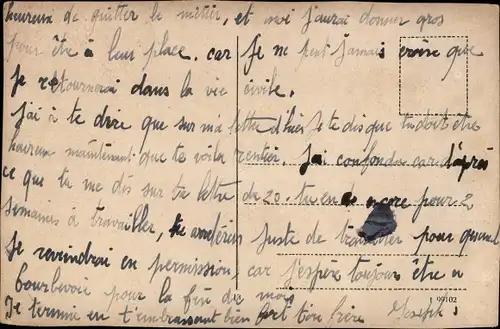 heureux de quitter le métier, et moi j'aurai donner gros
pour être à leur place, car je ne peut jamais croire que
je retournerai dans la vie civile.
J'ai à te dire que sur ma lettre d'hier je te dis que tu doit être
heureux maintenant que te voila rentier j'ai confondu car d'après
ce que tu me dis sur ta lettre du 20. tu en as encore pour 2
semaines à travailler, tu juste de travailler pour quand
je reviendrai en permission, car j'espère toujours être a
bourbevoie pour la fin du mois
Je termine en t'embrassant bien fort ton frère Joseph.
99102